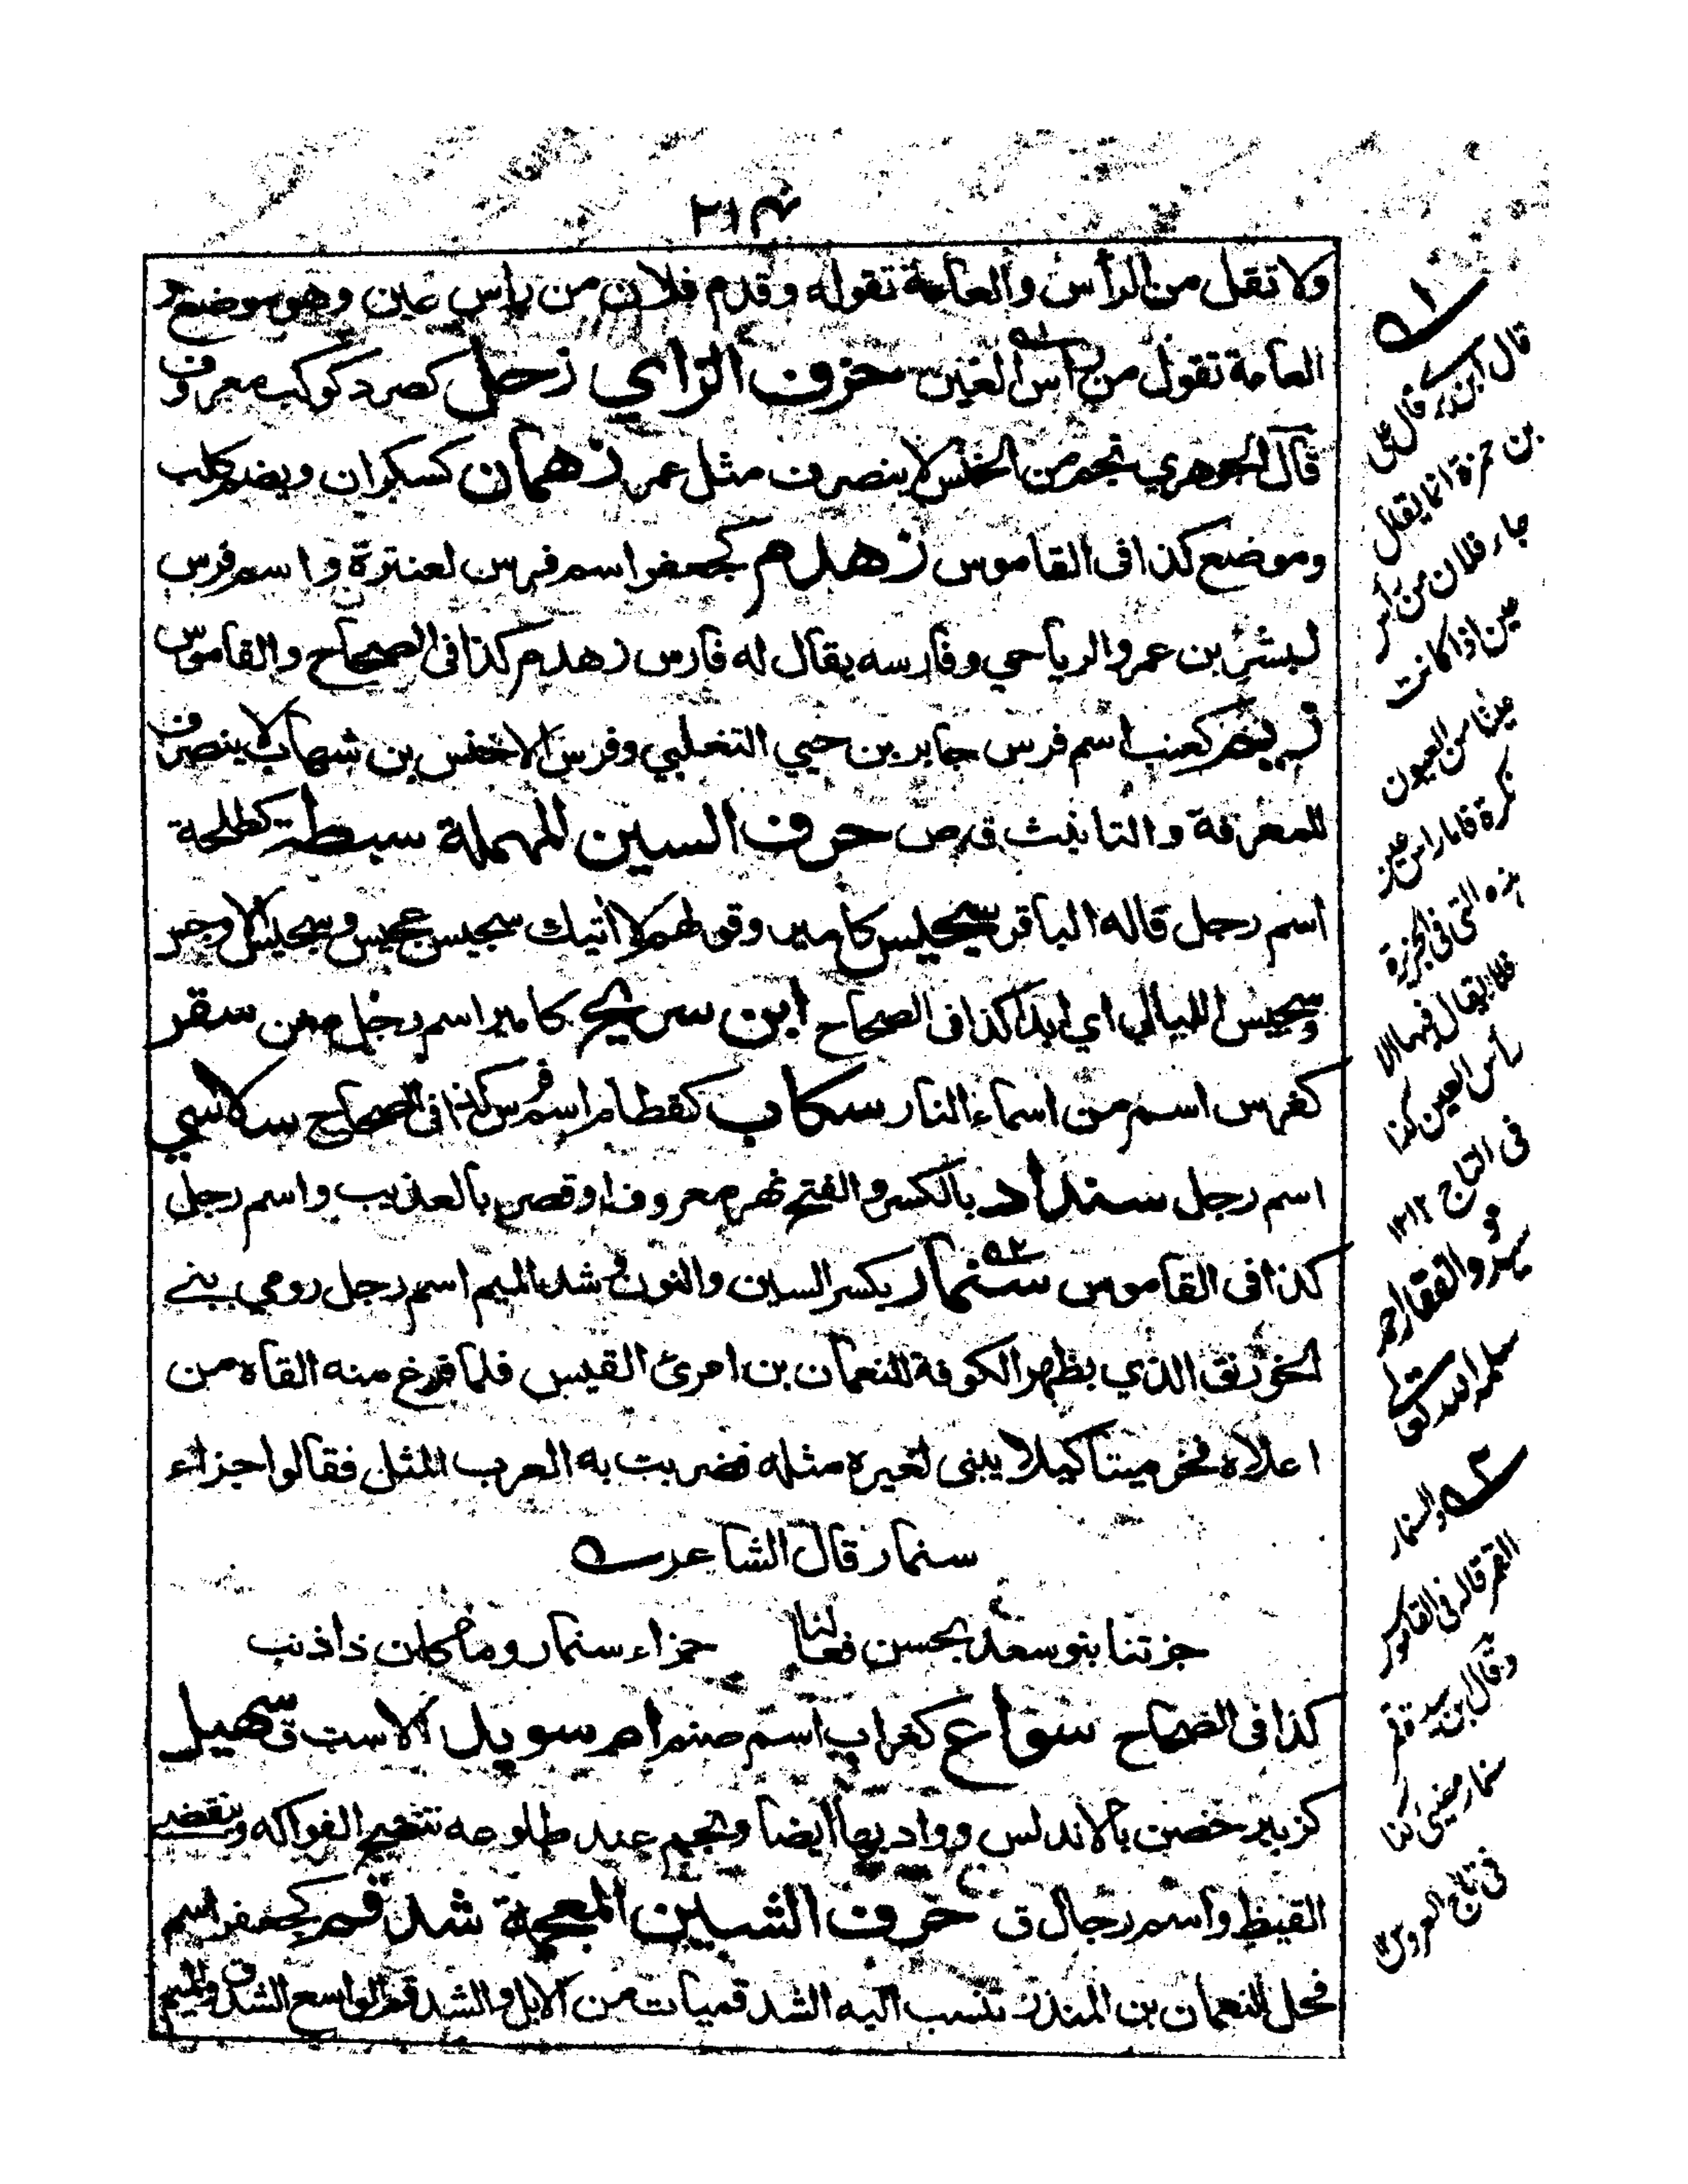 ٢١٣
ولا تقل من الرأس والعامة تقوله وقدم فلان من رأس عين وهو موضع و
العامة تقول من رأس العين حرف الزاي زحل كصرد كوكب معروف
قال الجوهري نجم من الخنس لا ينصرف مثل عمر زهمان كسكران ويضم كلب
وموضع كذا في القاموس زهدم كجعفر اسم فرس لعنترة واسم فرس
لبشر بن عمرو الرياحي وفارسه يقال له فارس زهدم كذا في الصحاح والقاموس
زيم كعنب اسم فرس جابر بن حيي التغلبي وفرس الاخنس بن شهاب لا ينصرف
للمعرفة والتانيث ق ص حرف السين المهملة سبطة كطلحة
اسم رجل قاله الباقر سجيس كامير وقولهم لا أتيك سجيس عجيس وسجيس الاوجس
وسجيس الليالي اي ابدا كذا في الصحاح ابن سريج كامير اسم رجل مغن سقر
كفرس اسم من اسماء النار سكاب كقطام اسم فرس كذا في الصحاح سلاسي
اسم رجل سنداد بالكسر والفتح نهر معروف او قصر بالعذيب واسم رجل
كذا في القاموس سنمار بكسر السين والنون وشد الميم اسم رجل رومي بنى
الخورنق الذي بظهر الكوفة للنعمان بن امرئ القيس فلما فرغ منه القاه من
اعلاه فخر ميتا كيلا يبنى لغيره مثله فضربت به العرب المثل فقالوا جزاء
سنمار قال الشاعر
جزتنا بنو سعد بحسن فعالنا جزاء سنمار وما كان ذا ذنب
كذا في الصحاح سواع كغراب اسم صنم ام سويل الاست ق سهيل
كزبير حصن بالاندلس وواد بها ايضا ونجم عند طلوعه تنضج الفواكه وينقضي
القيظ واسم رجال ق حرف الشين المعجمة شدقم كجعفر اسم
فحل للنعمان بن المنذر تنسب اليه الشدقميات من الابل والشدقم الواسع الشدق والميم
١
قال ابن قال على
بن حمزة انما يقال
جاء فلان من رأس
عين اذا كانت
عينا من العيون
نكرة فاما راس عين
هذه التي في الجزيرة
فلا يقال فيها الا
رأس العين كذا
في التاج ١٢
سيد ذو الفقار احمد
سلمه الله تعالى
٢ والسنمار
القمر قاله في القاموس
وقال ابن سيده قمر
سنمار مضيئ كذا
في تاج العروس